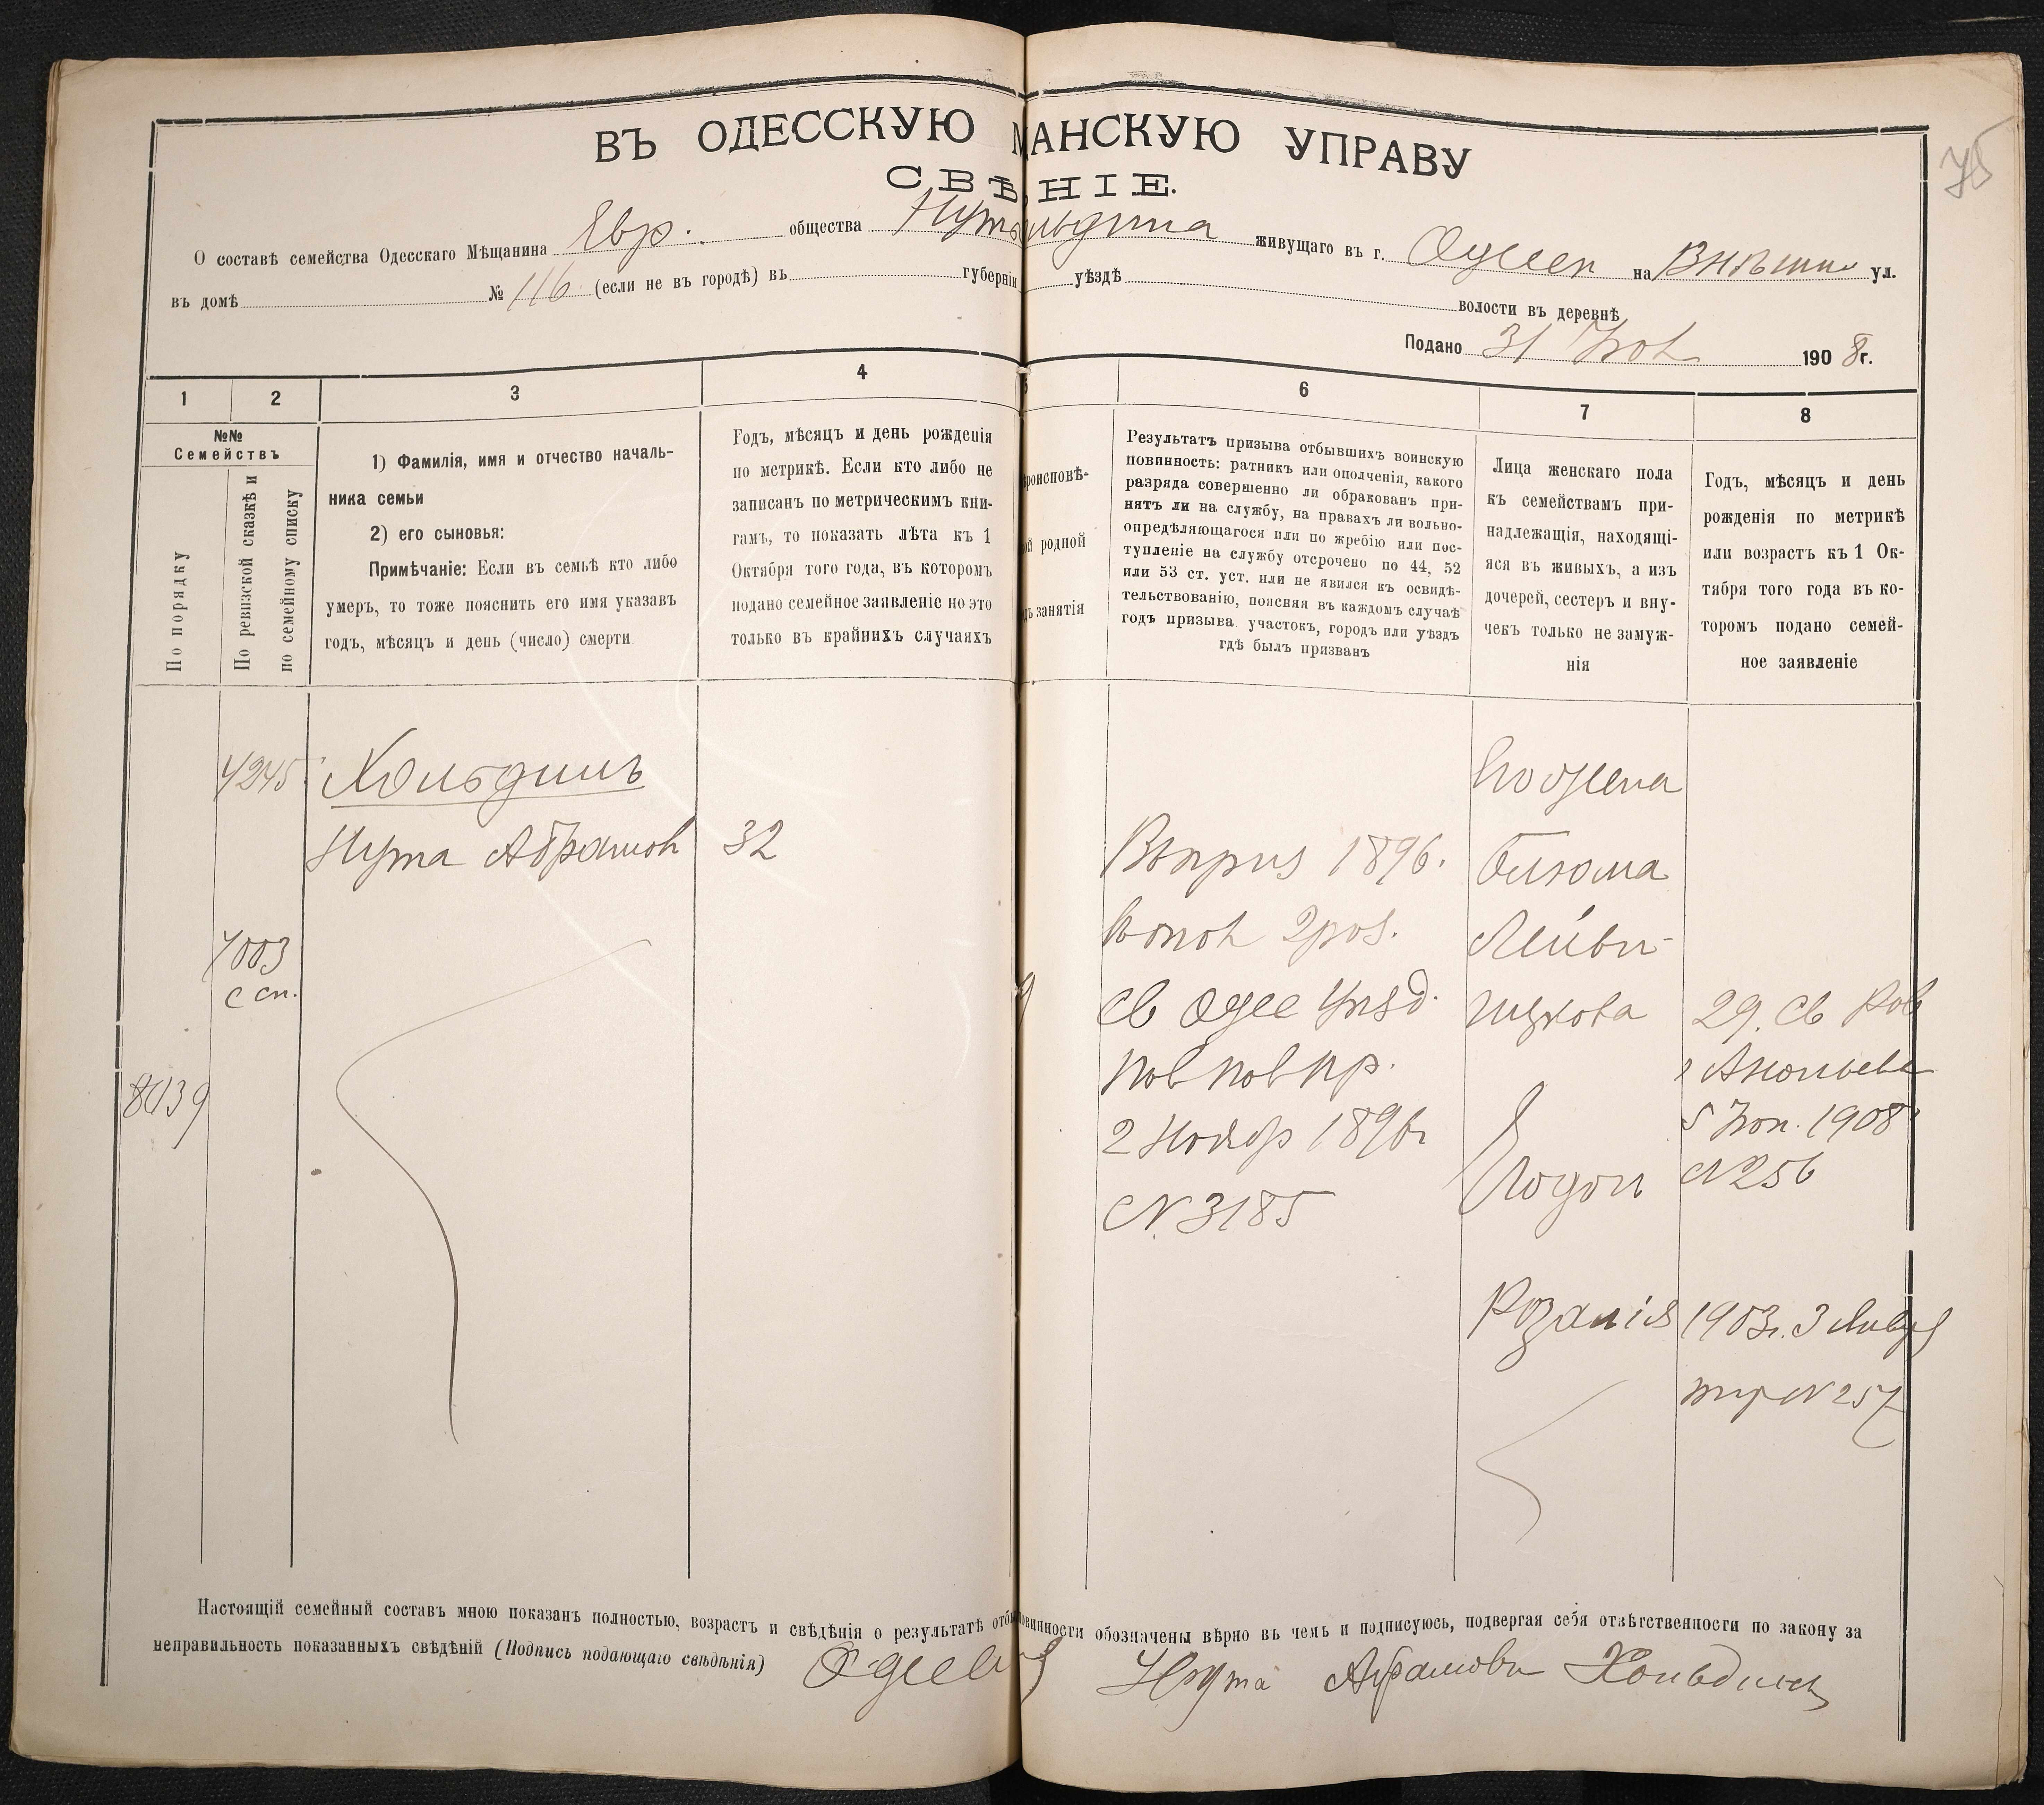 ВЪ ОДЕССКУЮ МАНСКУЮ УПРАВУ
75
СВѢНІЕ.
О составѣ семейства Одесскаго Мѣщанина Евр. общества живущаго въ г. Одессѣ на Внѣшн ул.
въ домѣ № 116 (если не въ городѣ) въ губерніи уѣздѣ волости въ деревнѣ
Подано 31 1908 г.
1 2 3 4 5 6 7 8
№№
Семействъ
По порядку
По ревизской сказкѣ и
по семейному списку
1) Фамилія, имя и отчество началь-
ника семьи
2) его сыновья:
Примѣчаніе: Если въ семьѣ кто либо
умеръ, то тоже пояснить его имя указавъ
годъ, мѣсяцъ и день (число) смерти
Годъ, мѣсяцъ и день рожденія
по метрикѣ. Если кто либо не
записанъ по метрическимъ кни-
гамъ, то показать лѣта къ 1
Октября того года, въ которомъ
подано семейное заявленіе но это
только въ крайнихъ случаяхъ
роисповѣ-
ой родной
дъ занятія
Результатъ призыва отбывшихъ воинскую
повинность: ратникъ или ополченія, какого
разряда совершенно ли обракованъ при-
нятъ ли на службу, на правахъ ли вольно-
опредѣляющагося или по жребію или пос-
тупленіе на службу отсрочено по 44, 52
или 53 ст. уст. или не явился къ освидѣ-
тельствованію, поясняя въ каждомъ случаѣ
годъ призыва участокъ, городъ или уѣздъ
гдѣ былъ призванъ
Лица женскаго пола
къ семействамъ при-
надлежащія, находящі-
яся въ живыхъ, а изъ
дочерей, сестеръ и вну-
чекъ только не замуж-
нія
Годъ, мѣсяцъ и день
рожденія по метрикѣ
или возрастъ къ 1 Ок-
тября того года въ ко-
торомъ подано семей-
ное заявленіе
4245
Хольдинъ
Нута Абрамов
32
7003
с сп.
8039
Въ приз 1896.
2 раз.
Св Одес Уѣзд.
пов пов пр.
2 Ноябр 1896 г
№ 3185
Его жена
Блюма
Лейви-
Ицкова
29. Св Рав
г Ананьева
5 1908
№ 256
Его доч
Розалія
1903 г. 3 Январ
№ 257
Настоящій семейный составъ мною показанъ полностью, возрастъ и свѣдѣнія о результатѣ отбы повинности обозначены вѣрно въ чемъ и подписуюсь, подвергая себя отвѣтственности по закону за
неправильность показанныхъ свѣдѣній (Подпись подающаго свѣдѣнія) Нута Абрамовъ Хольдинъ